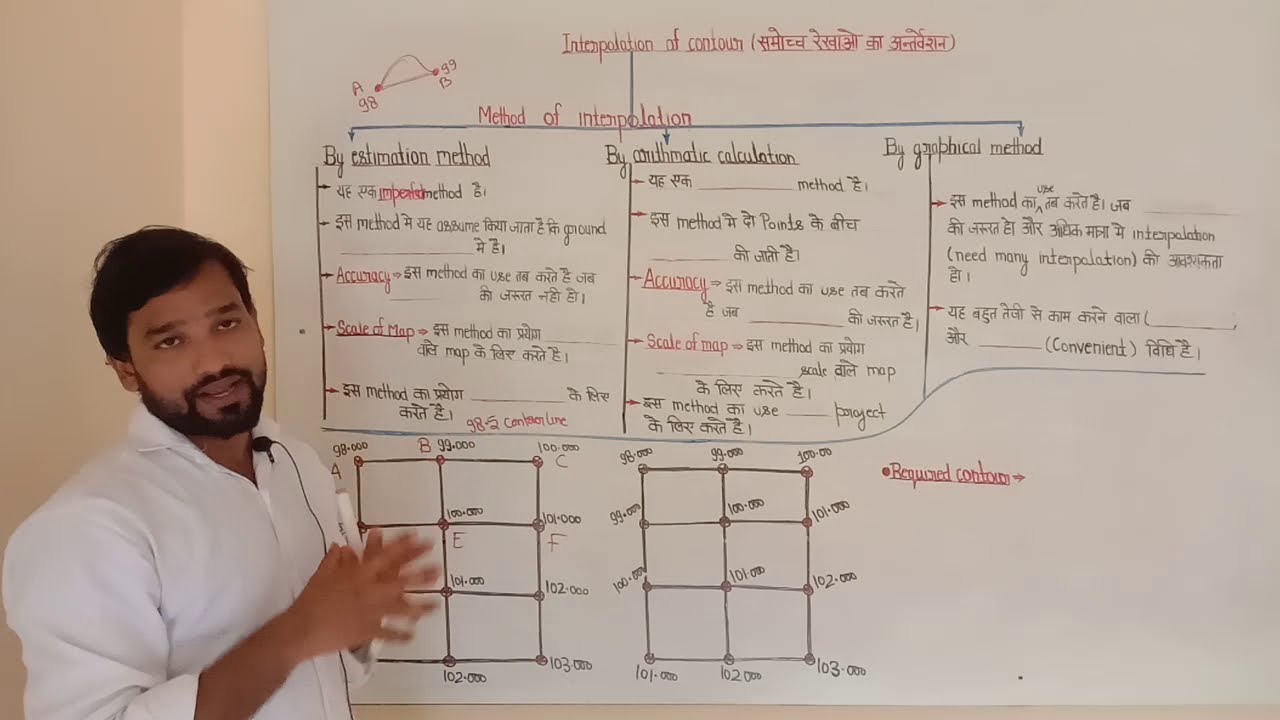 Interpolation of contour (समोच्च रेखाओ का अन्तर्वेशन)
A
98
99
B
Method of interpolation
By estimation method
यह एक imperfect method है।
इस method मे यह assume किया जाता है कि ground
__________ मे है।
Accuracy ⇒ इस method का use तब करते है जब
______ की जरूरत नही हो।
Scale of Map ⇒ इस method का प्रयोग ________
वाले map के लिए करते है।
इस method का प्रयोग ________ के लिए
करते है।
By arithmatic calculation
यह एक __________ method है।
इस method मे दो Points के बीच
________ की जाती है।
Accuracy ⇒ इस method का use तब करते
है जब __________ की जरूरत है।
Scale of map ⇒ इस method का प्रयोग
______________ scale वाले map
के लिए करते है।
इस method का use ____ project
के लिए करते है।
By graphical method
इस method का use तब करते है। जब __________
की जरूरत हो और अधिक मात्रा मे interpolation
(need many interpolation) की आवश्यकता
हो।
यह बहुत तेजी से काम करने वाला (________)
और ______ (Convenient) विधि है।
98.5 Contour line
98.000
B 99.000
100.000
A
C
100.000
101.000
E
F
101.000
102.000
102.000
103.000
98.000
99.000
100.00
99.000
100.000
101.000
100.000
101.000
102.000
101.000
102.000
103.000
Required contour →